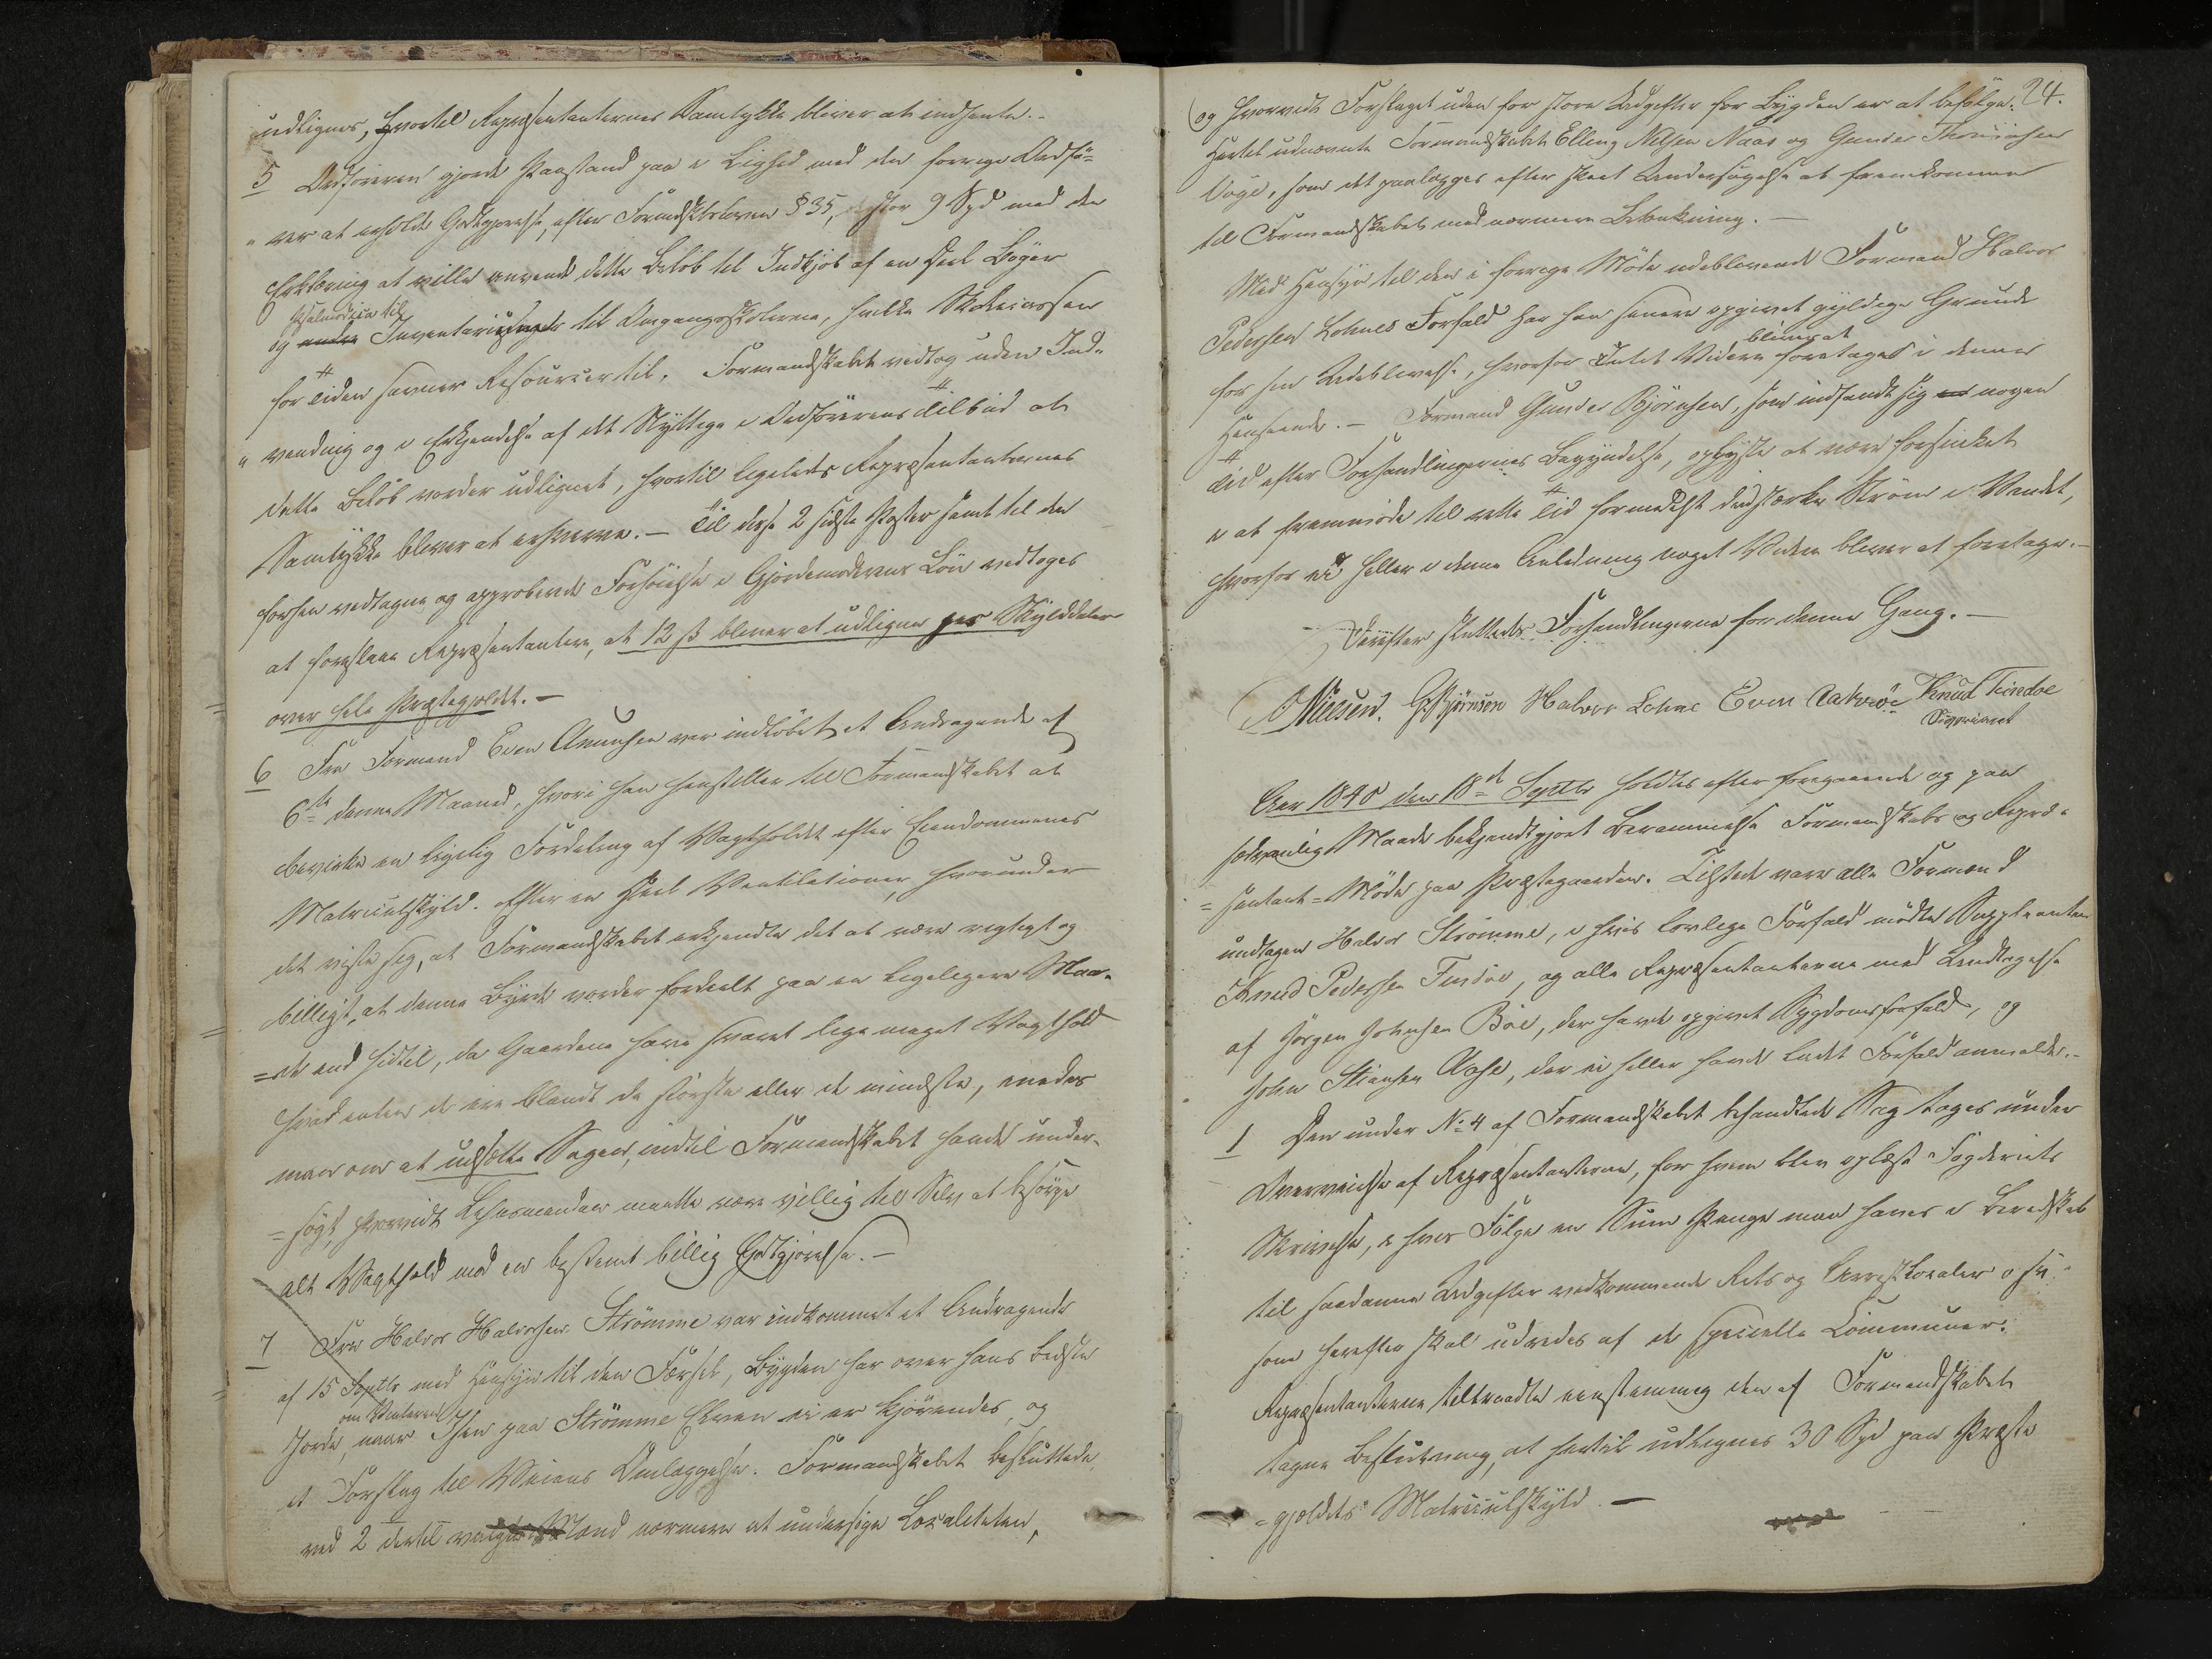 udlignes, hvortil Repræsentanternes Samtykke bliver at indhente.-
5 Ordføreren gjorde Paastand paa i Lighed med den forrige Ordfø=
rer at erholde Godtgjørelse, efter Formdskbsloven § 35, stor 9 Spd med den
Erklæring at ville anvende dette Beløb til Indkjøb af en Deel Bøger
Psalmodica til
og andre Inventarier til Omgangsskolerne, hvilke Skolecassen
for Tiden savner Resourcer til. Formandskabet vedtog uden Ind=
vending og i Erkjendelse af det Nyttige i Ordførerens Tilbud at
dette Beløb vorder udlignet, hvortil ligeledes Repræsentanternes
Samtykke bliver at erhverve. - Til disse 2 sidste Poster samt til den
forhen vedtagne og approberede Forhøielse i Gjordemoderens Løn vedtoges
at foreslaae Repræsentanterne, at 12 ß bliver at udligne per Skylddaler
over hele Præstegjeldet. -
6 Fra Formand Even Amunsen var indløbet et Andragende af
6te denne Maaned, hvori han henstiller til Formandskabet at
bevirke en ligelig Fordeling af Vagtholdet efter Eiendommenes
Matriculskyld. Efter en Deel Ventilationer, hvorunder
det viste sig, at Formandskabet erkjendte det at være rigtigt og
billigt, at denne Byrde vorder fordeelt paa en ligeligere Maa=
=de end hidtil, da Gaardene have svaret lige meget Vagthold
hvad enten de ere blandt de største eller de mindste, enedes
man om at udsætte Sagen, indtil Formandskabet havde under=
=søgt hvorvidt Lehnsmanden maatte være villig til Selv at besørge
alt Vagthold mod en bestemt billig Godtgjørelse. -
7 Fra Halvor Halvorsen Strømme var indkommet et Andragende
af 15 Septbr med Hensyn til den Færsel, Bygden har over hans bedste
om Vinteren
Jorde, naar Isen paa Strømme Elven ei er kjørendes, og
et Forslag til Veiens Omlæggelse. Formandskabet besluttede,
ved 2 dertil valgte Mænd nærmere at undersøge Localiteten,
24.
og hvorvidt Forslaget uden for store Udgifter for Bygden er at befølge.
Hertil udnævnte Formandskabet Elling Nilsen Naas og Gunder
Voge, som det paalægges efter skeet Undersøgelse at fremkomme
til Formandskabet med nærmere Betænkning. -
Med Hensyn til den i forrige Møde udeblevende Formand Halvor
Pedersen Lohnes Forfald har han senere opgivet gyldige Grunde
bliver at
for sin Udeblivelse, hvorfor Intet Videre foretages i denne
Henseende. - Formand Gunder Bjørnsen, som indfandt sig en nogen
Tid efter Forhandlingernes Begyndelse, oplyste at være forsinket
i at fremmøde til rette Tid formedelst den stærke Strøm i Vandet,
hvorfor ei heller i denne Anledning noget Videre bliver at foretage. -
Derefter sluttedes Forhandlingerne for denne Gang. -
Nielsen. G. Bjørnsen Halvor Lohne Even Aakrøe Knud Tindoe
Aar 1840 den 18de Septbr holdtes efter foregaaende og paa
sædvanlig Maade bekjendtgjort Berammelse Formandskabs og Repræ=
=sentant=Møde paa Præstegaarden. Tilstede vare alle Formænd
undtagen Halvor Strømme, i hvis lovlige Forfald mødte Suppleanten
Knud Pedersen Tindoe, og alle Repræsentanterne med Undtagelse
af Jørgen Johnsen Bøe, der havde opgivet Sygdomsforfald, og
John Stiansen Aase, der ei heller havde ladet Forfald anmelde. -
1 Den under No 4 af Formandskabet behandlede Sag toges under
Overveielse af Repræsentanterne, for hvem blev oplæst Fogderiets
Skrivelse, i hvis Følge en Sum Penge maa haves i Beredskab
til saadanne Udgifter vedkommende Rets og Arrest Localer osv.
som herefter skal udredes af de specielle Communer.
Repræsentanterne tiltraadte eenstemmig den af Formandskabet
tagne Beslutning, at hertil udlignes 30 Spd paa Præste
=gjeldets Matriculskyld. -